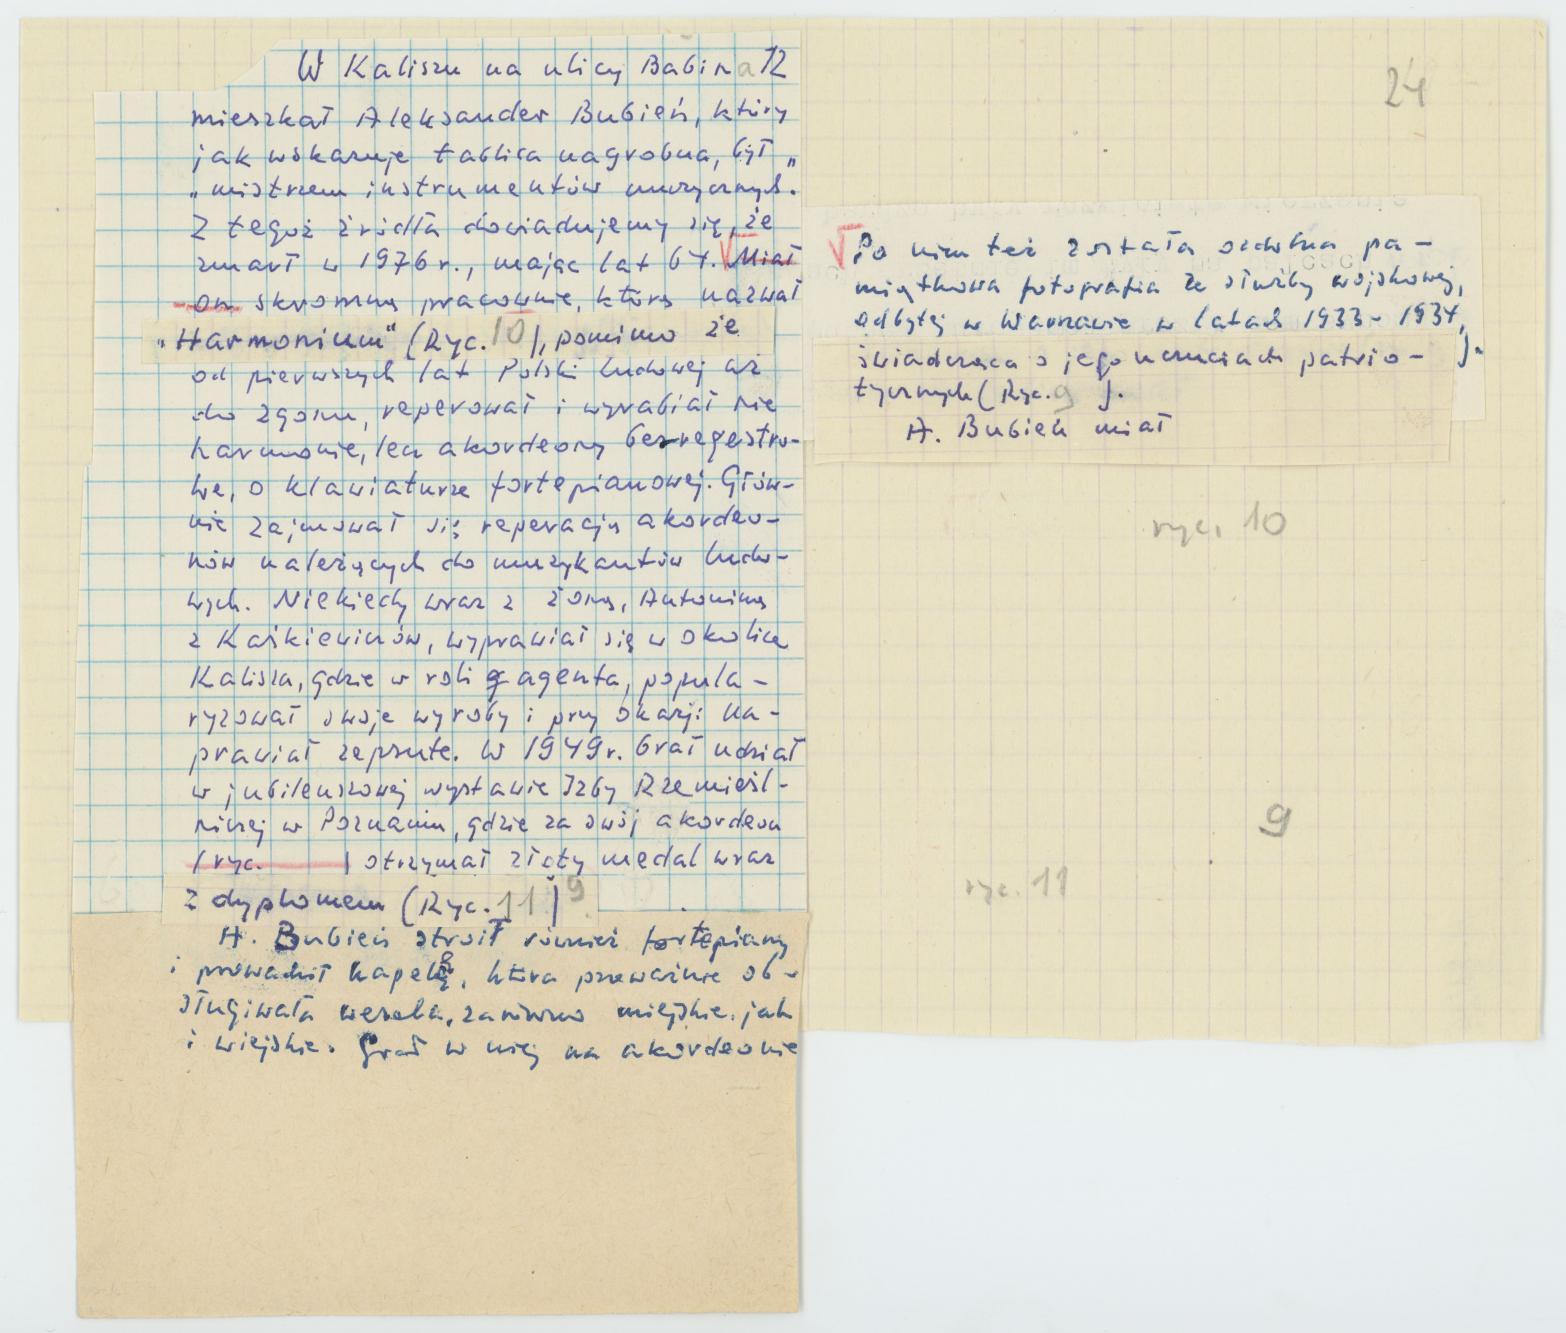 W Kaliszu na ulicy Babina 12
mieszkał Aleksander Bubień, który
jak wskazuje tablica nagrobna, był „
„mistrzem instrumentów muzycznych.
Z tegoż źródła dowiadujemy się, że
zmarł w 1976 r., mając lat 64. √ Miał
on skromną pracownię, którą nazwał
„Harmonium" (Ryc. 10), pomimo że
od pierwszych lat Polski Ludowej aż
do zgonu, reperował i wyrabiał nie
harmonie, lecz akordeony bezregestro-
we, o klawiaturze fortepianowej. Głów-
nie zajmował się reperacją akordeo-
nów należących do muzykantów ludo-
wych. Niekiedy wraz z żoną, Antoniną
z Kaśkiewiczów, wyprawiał się w okolice
Kalisza, gdzie w roli agenta, popula-
ryzował swoje wyroby i przy okazji na-
prawiał zepsute. W 1949 r. brał udział
w jubileuszowej wystawie Izby Rzemieśl-
niczej w Poznaniu, gdzie za swój akordeon
/ryc. / otrzymał złoty medal wraz
z dyplomem (Ryc. 11) 9
A. Bubień stroił również fortepiany
i prowadził kapelę, która przeważnie ob-
sługiwała wesela, zarówno miejskie, jak
i wiejskie. Grał w niej na akordeonie
24
√ Po nim też została ozdobna pa-
miątkowa fotografia ze służby wojskowej,
odbytej w Warszawie w latach 1933-1934,
świadcząca o jego uczuciach patrio- ).
tycznych (Ryc. 9 ).
A. Bubień miał
ryc. 10
9
ryc. 11